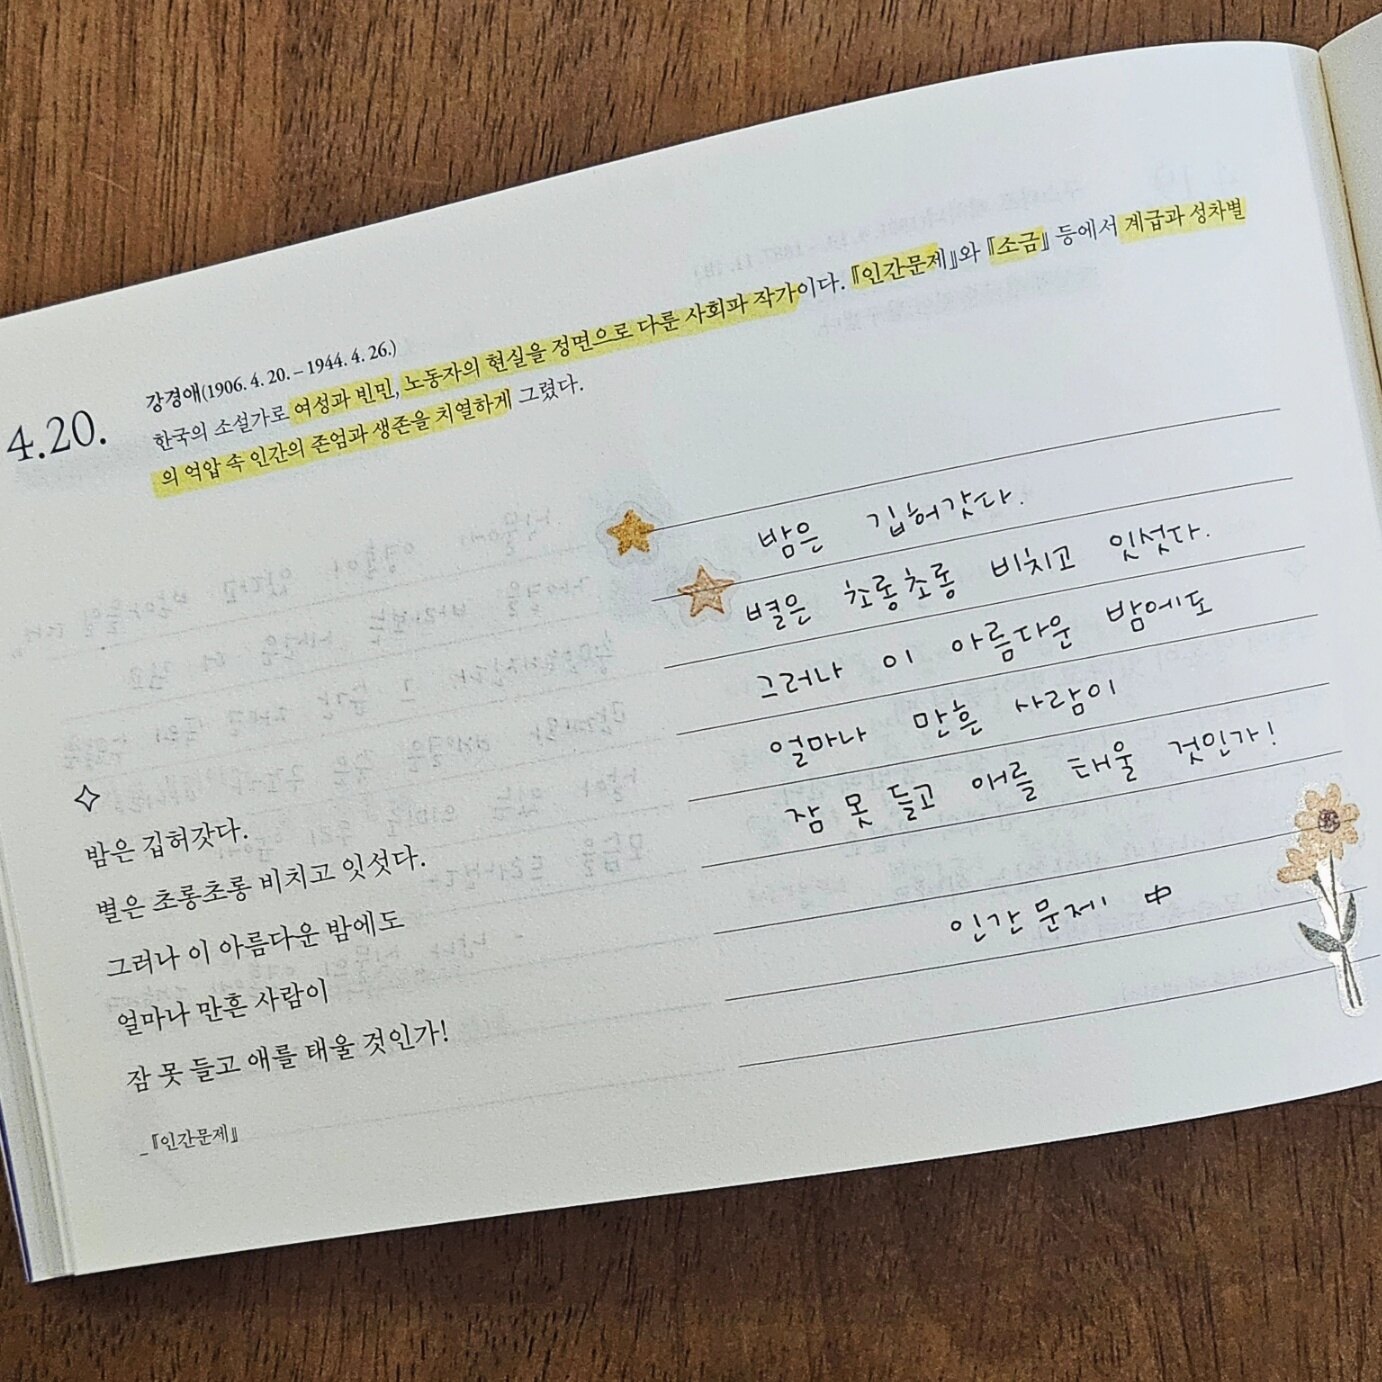 4.20.
강경애(1906. 4. 20. – 1944. 4. 26.)
한국의 소설가로 여성과 빈민, 노동자의 현실을 정면으로 다룬 사회파 작가이다. 『인간문제』와 『소금』 등에서 계급과 성차별
의 억압 속 인간의 존엄과 생존을 치열하게 그렸다.
밤은 깁허갓다.
별은 초롱초롱 비치고 잇섯다.
그러나 이 아름다운 밤에도
얼마나 만흔 사람이
잠 못 들고 애를 태울 것인가!
_『인간문제』
밤은 깁허갓다.
별은 초롱초롱 비치고 잇섯다.
그러나 이 아름다운 밤에도
얼마나 만흔 사람이
잠 못 들고 애를 태울 것인가!
인간문제 中